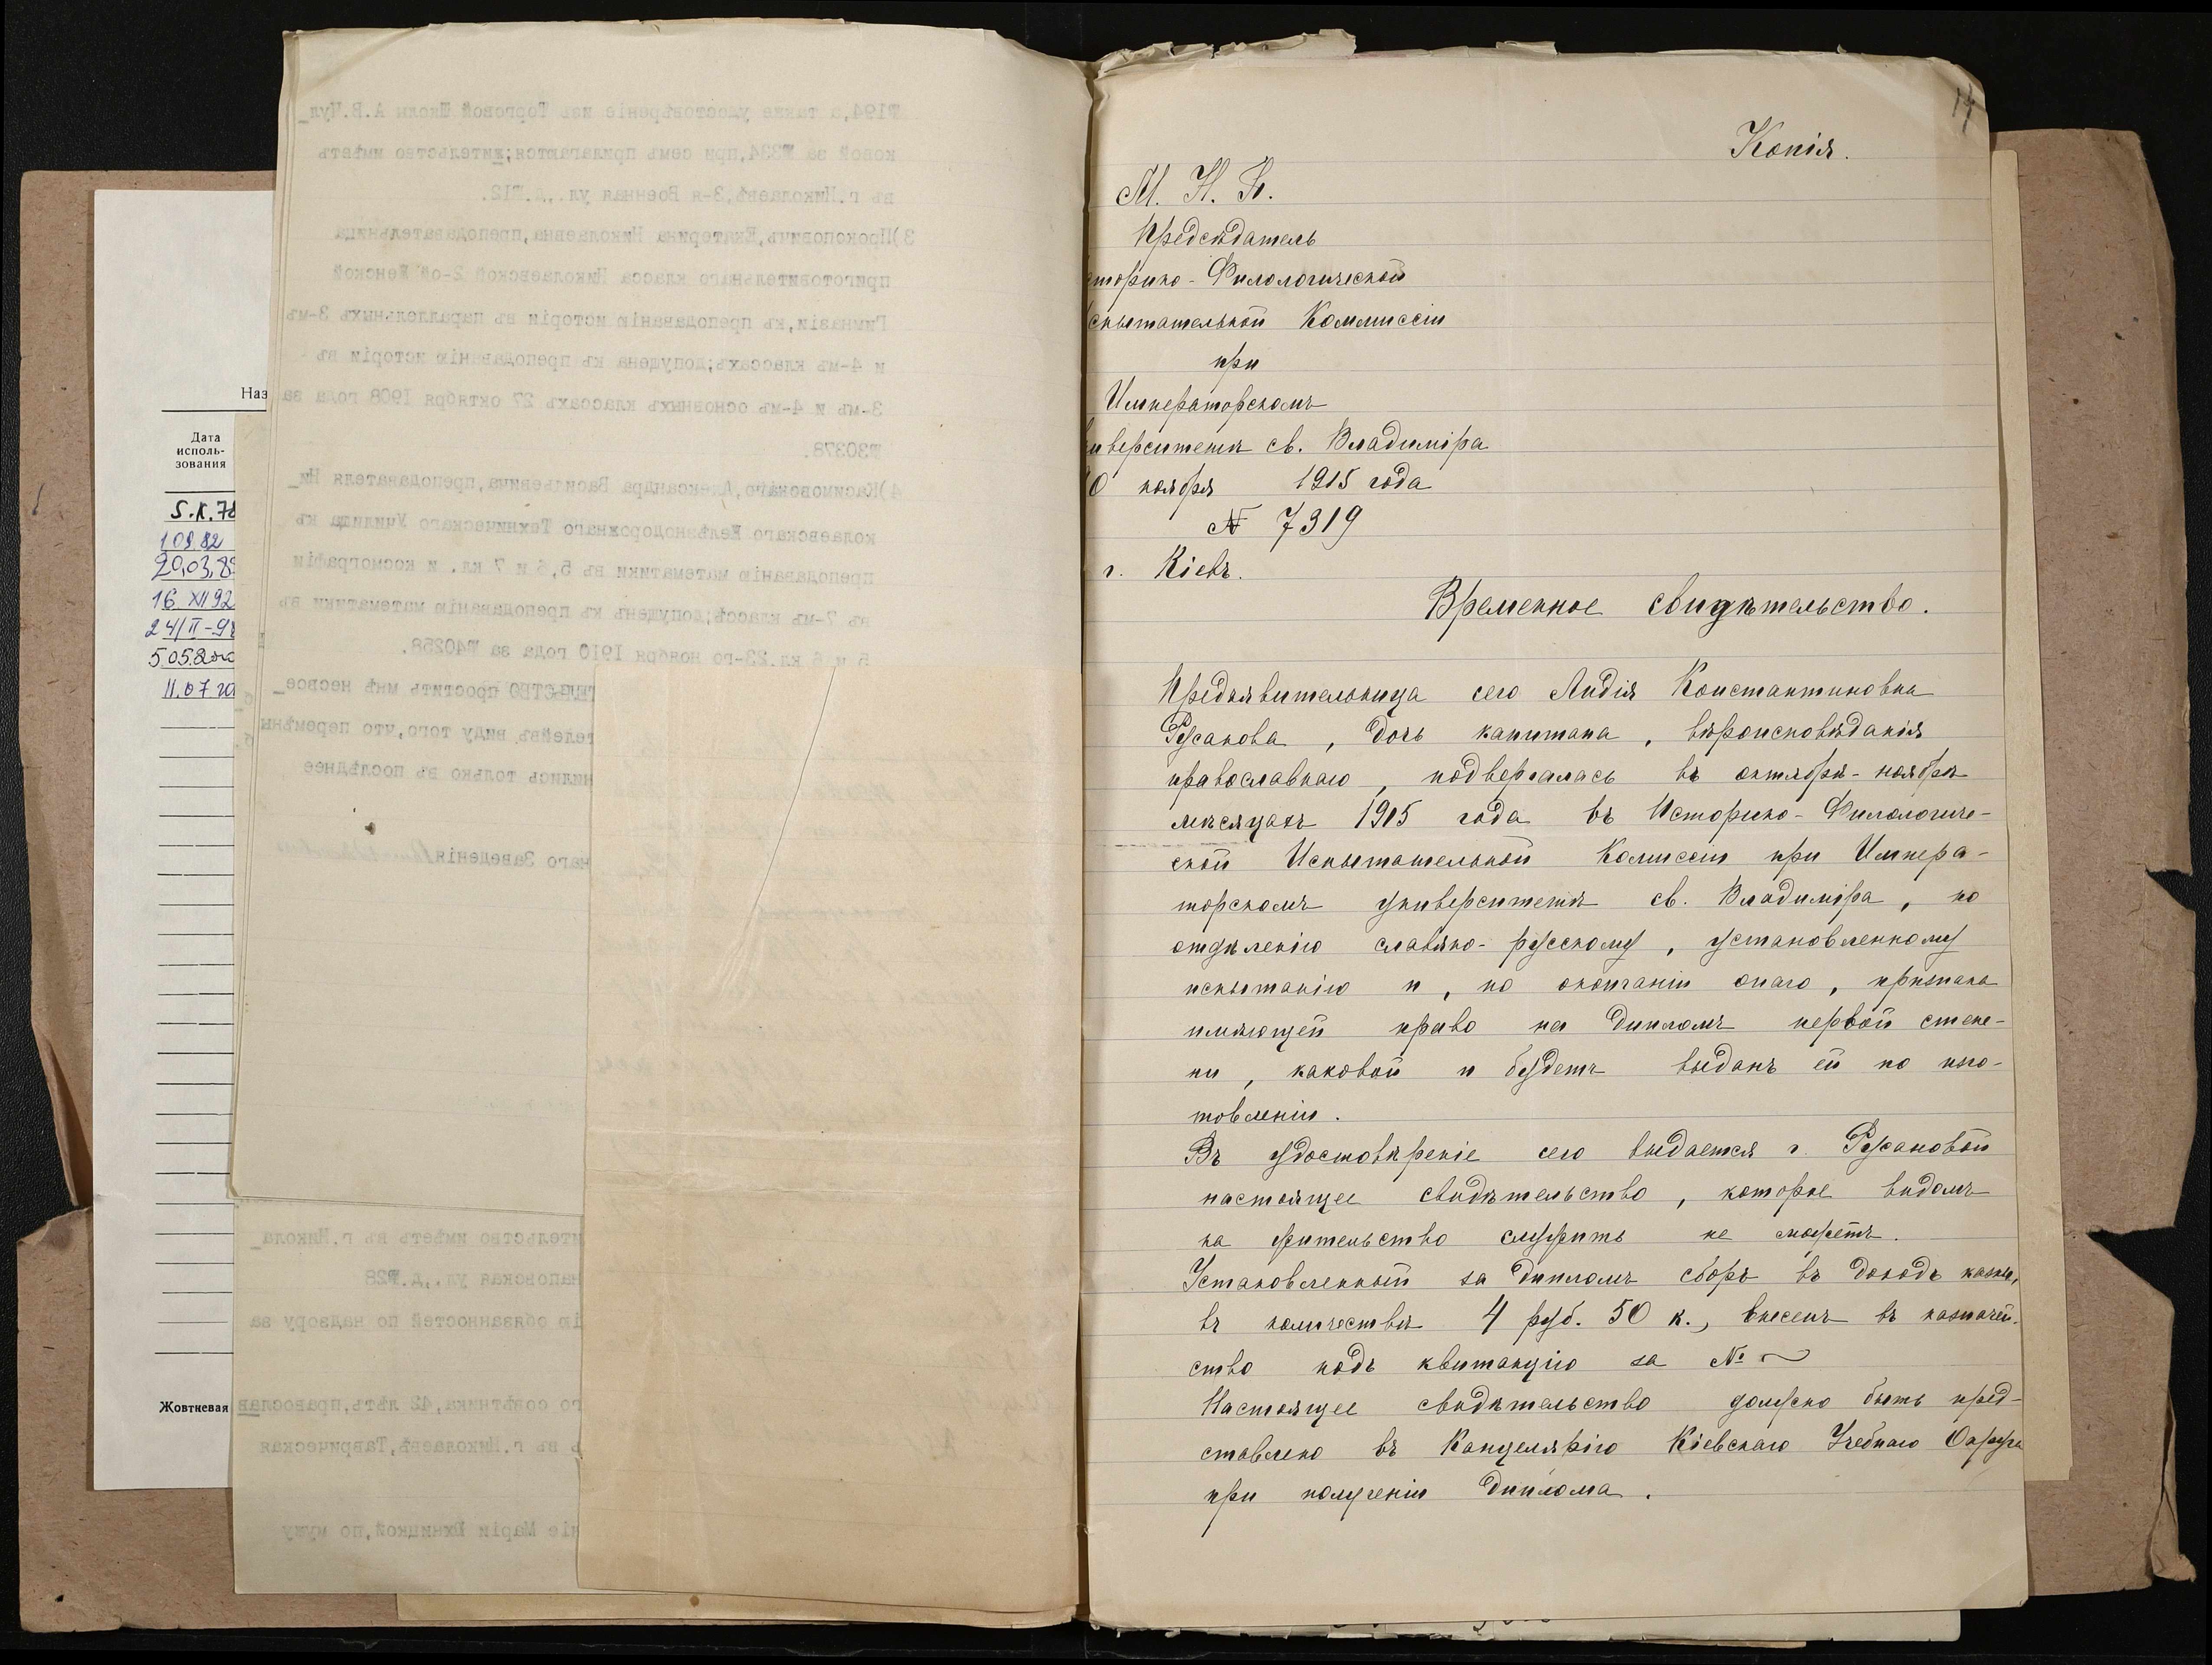 14
Копія.
М. Н. П.
Предсѣдатель
торико-Филологической
спытательной Коммиссіи
при
Императорскомъ
иверситетѣ св. Владиміра
0 ноября 1915 года
№ 7319
г. Кіевъ.
Временное свидѣтельство.
Предъявительница сего Лидія Константиновна
Русанова, дочь капитана, вѣроисповѣданія
православнаго, подвергалась въ октябрѣ-ноябрѣ
мѣсяцахъ 1915 года въ Историко-Филологиче-
ской Испытательной Комиссіи при Импера-
торскомъ университетѣ св. Владиміра, по
отдѣленію славяно-русскому, установленному
испытанію и, по окончаніи онаго, признана
имѣющей право на дипломъ первой степе-
ни, каковой и будетъ выданъ ей по изго-
товленіи.
Въ удостовѣреніе сего выдается г. Русановой
настоящее свидѣтельство, которое видомъ
на жительство служить не можетъ.
Установленный за дипломъ сборъ въ доходъ казны,
въ количествѣ 4 руб. 50 к., внесенъ въ казначей-
ство подъ квитанцію за №
Настоящее свидѣтельство должно быть пред-
ставлено въ Канцелярію Кіевскаго Учебнаго Округа
при полученіи диплома.
№194,а также удостовѣреніе изъ Торговой Школы А.В.Чул_
ковой за №334,при семъ прилагаются;жительство имѣетъ
въ г.Николаевѣ,3-я Военная ул.,д.№12.
3)Прокоповичъ,Екатерина Николаевна,преподавательница
приготовительнаго класса Николаевской 2-ой Женской
Гимназіи,къ преподаванію исторіи въ параллельныхъ 3-мъ
и 4-мъ классахъ;допущена къ преподаванію исторіи въ
3-мъ и 4-мъ основныхъ классахъ 27 октября 1908 года за
№30378.
4)Касимовскаго,Александра Васильевича,преподавателя Ни_
колаевскаго Желѣзнодорожнаго Техническаго Училища къ
преподаванію математики въ 5,6 и 7 кл. и космографіи
въ 7-мъ классѣ;допущенъ къ преподаванію математики въ
5 и 6 кл.23-го ноября 1910 года за №40258.
простить мнѣ несвое_
виду того,что перемѣны
нились только въ послѣднее
наго Заведенія
тельство имѣетъ въ г.Никола_
ул.,д.№28
ію обязанностей по надзору за
го совѣтника,42 лѣтъ,православ
ъ въ г.Николаевѣ,Таврическая
ніе Маріи Южницкой,по мужу
Наз
Дата
исполь-
зования
S.К.78
10982
20,03,8
16 XII 92
24/II-9
11.07
Жовтневая